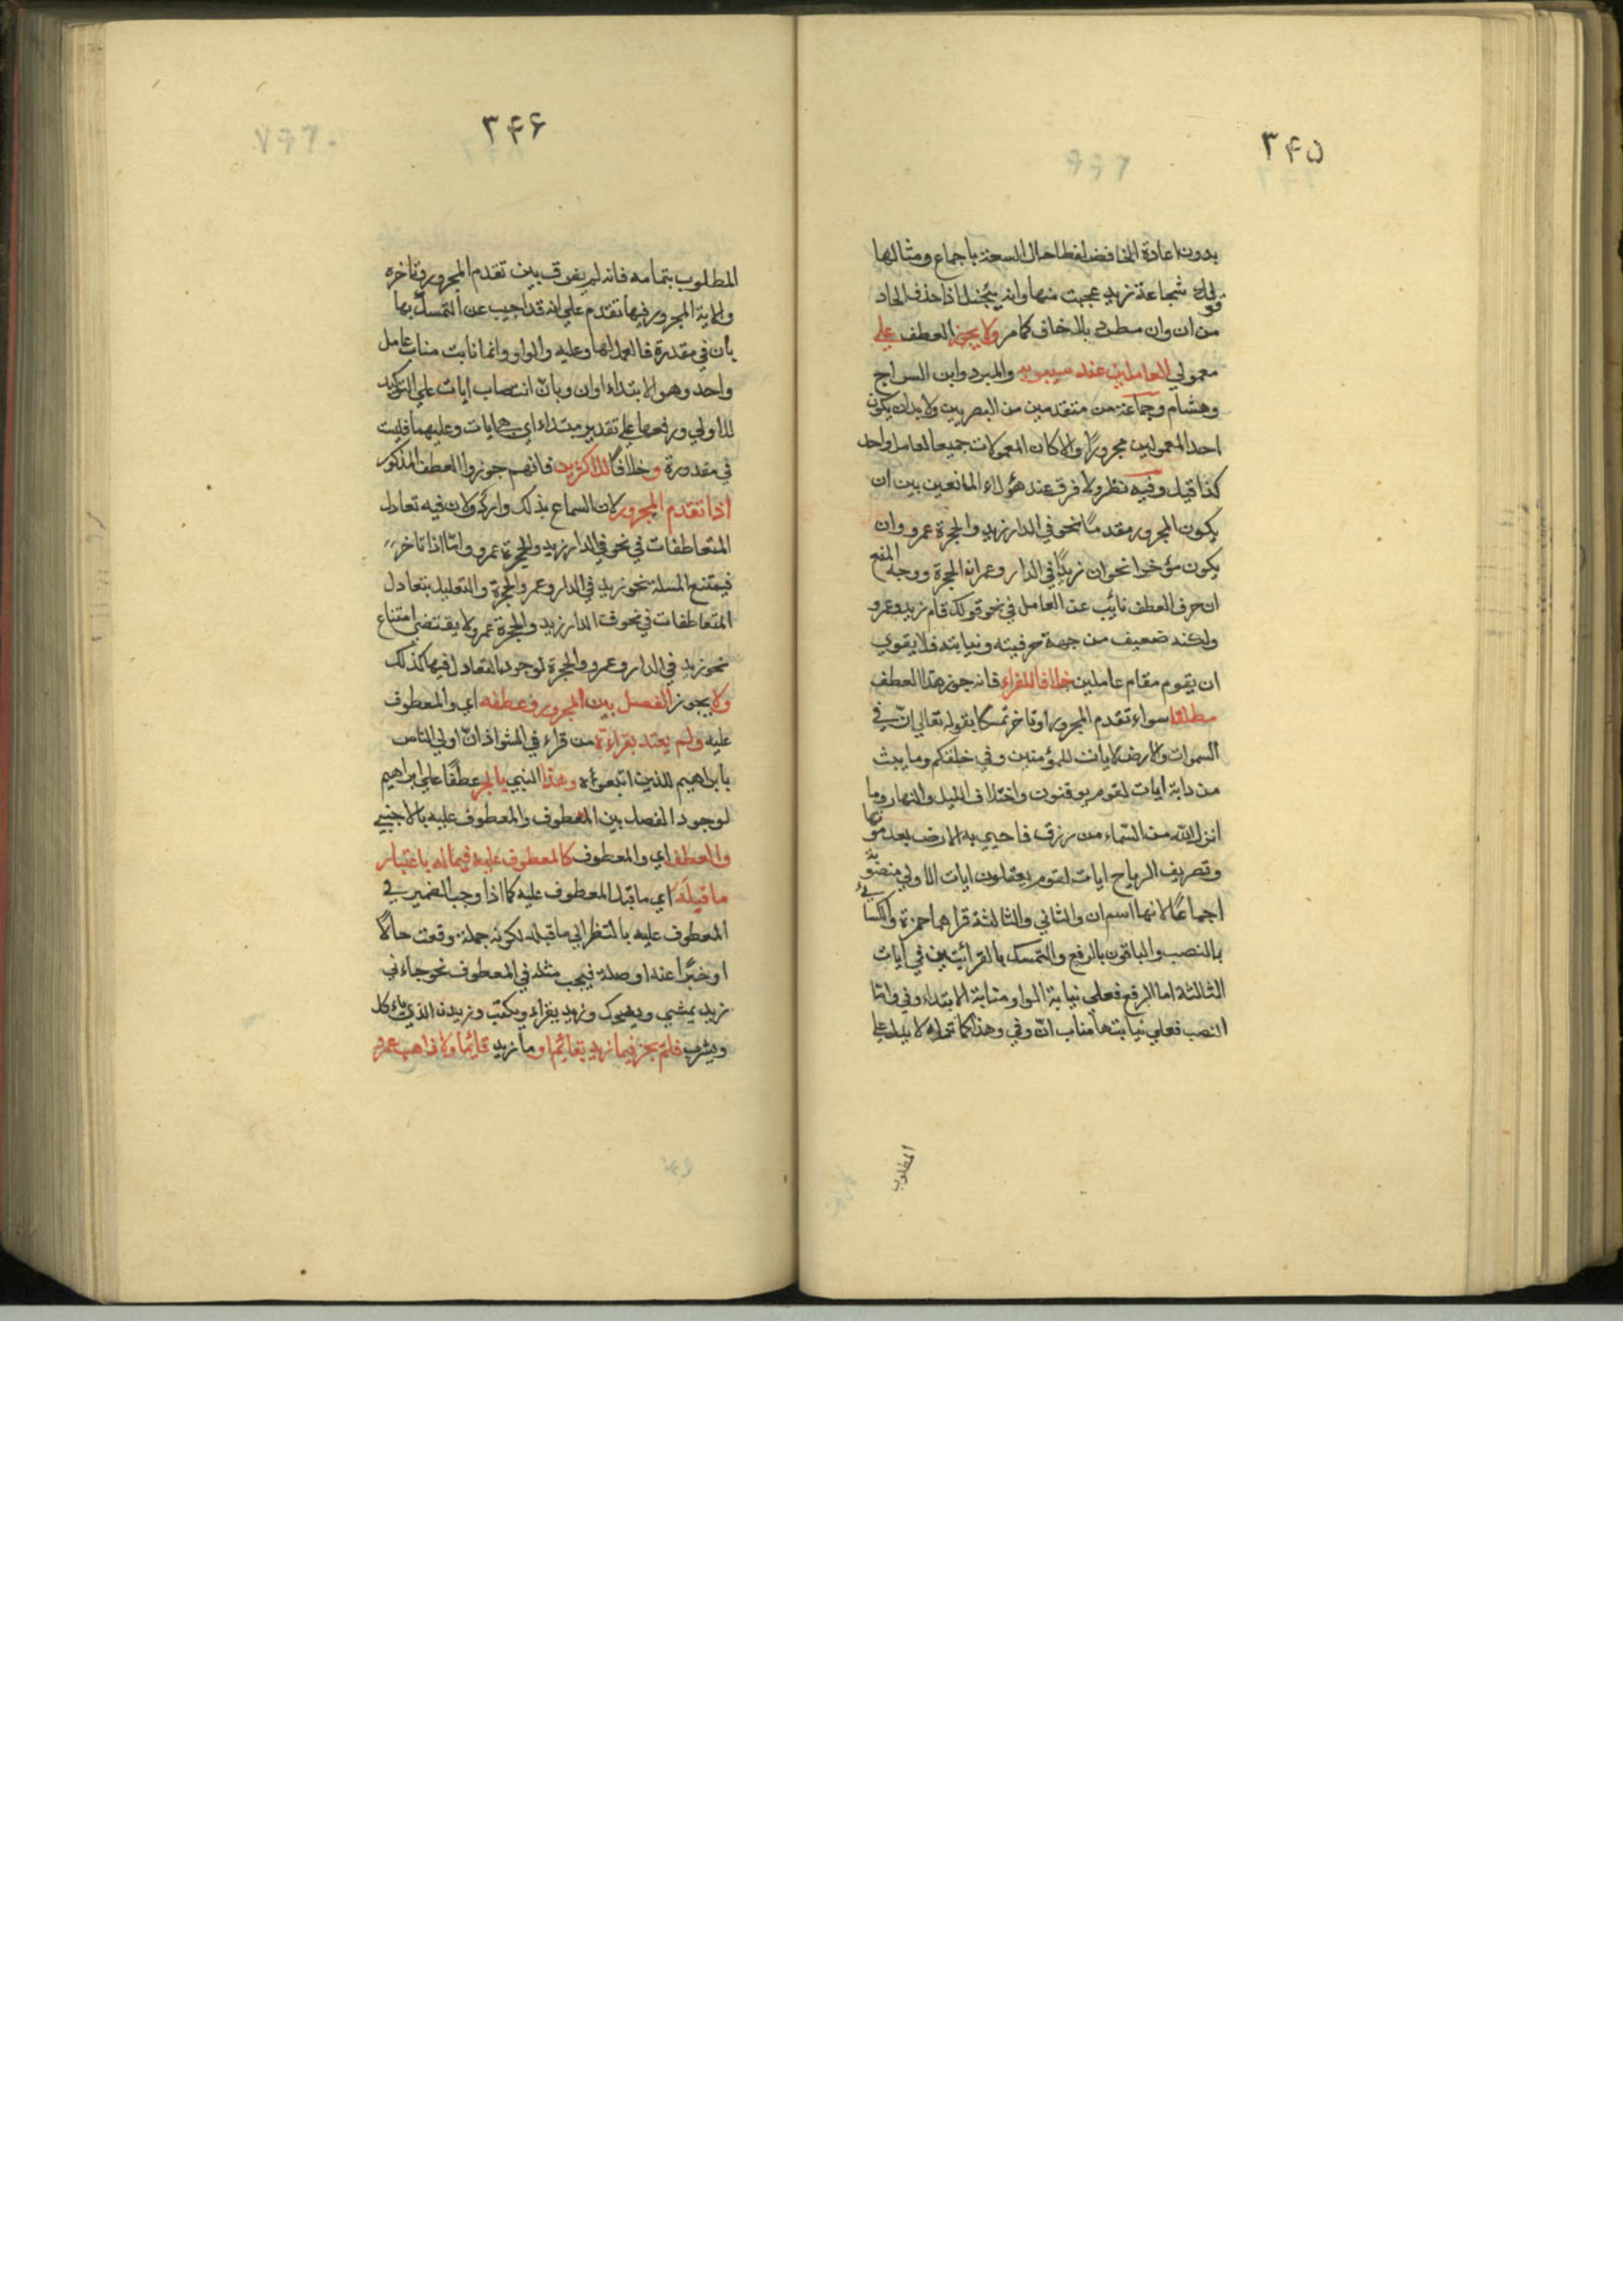 ٣۴۵
بدون اعادة الخافض لفظا حال السعة باجماع ومثالها
قولك شجاعة زيد عجبت منها وانه يبخل اذا حذف الجار
من ان وان مطرد بلا خلاف كما مر ولا يجوز العطف علي
معمولي العاملين عند سيبويه والمبرد وابن السراج
وهشام وجماعة من متقدمين من البصريين ولا بد ان يكون
احد المعمولين مجرورًا والا كان المعمولات جميعا لعامل واحد
كذا قيل وفيه نظر ولا فرق عند هؤلاء المانعين بين ان
يكون المجرور مقدمًا نحو في الدار زيد والحجرة عمرو وان
يكون مؤخرا نحو ان زيدًا في الدار وعمرا الحجرة ووجه المنع
ان حرف العطف نائب عن العامل في نحو قولك قام زيد وعمرو
ولكنه ضعيف من جهة حرفيته ونيابته فلا يقوي
ان يقوم مقام عاملين خلافا للفراء فانه جوز هذا العطف
مطلقا سواء تقدم المجرور او تاخر تمسكا بقوله تعالي انّ في
السموات والارض لايات للمؤمنين وفي خلقكم وما يبث
من دابة ايات لقوم يوقنون واختلاف الليل والنهار وما
انزل الله من السّماء من رزق فاحيي به الارض بعد موتها
وتصريف الرياح ايات لقوم يعقلون ايات الاولي منصوبة
اجماعًا لانها اسم ان والثاني والثالثة قراهما حمزة والكسائي
بالنصب والباقون بالرفع والتمسك بالقرائتين في ايات
الثالثة اما الرفع فعلي نيابة الواو منابة الابتداء وفي واما
النصب فعلي نيابتها مناب انّ وفي وهذا كما تراه لا يدل علي
المطلوب
٣۴۶
المطلوب بتمامه فانه لم يفرق بين تقدم المجرور وتاخره
والاية المجرور فيها تقدم علي انه قد اجيب عن التمسك بها
بان في مقدرة فالعمل لها وعليه والواو وانما نابت مناب عامل
واحد وهو الابتداء او ان وبانّ انتصاب ايات علي التوكيد
للاولي ورفعها علي تقدير مبتداء اي هي ايات وعليهما فليست
في مقدرة وخلافًا للاكثرين فانهم جوزوا العطف المذكور
اذا تقدم المجرور لان السماع بذلك وارد ولان فيه تعادل
المتعاطفات في نحو في الدار زيد والحجرة عمرو وامّا اذا تاخر
فيمتنع المسلة نحو زيد في الدار وعمرو الحجرة والتعليل بتعادل
المتعاطفات في نحو في الدار زيد والحجرة عمرو لا يقتضي امتناع
نحو زيد في الدار وعمرو والحجرة لوجود التعادل فيها كذلك
ولا يجوز الفصل بين المجرور وعطفه اي والمعطوف
عليه ولم يعتد بقراءة من قراء في الشواذ انّ اولي الناس
بابراهيم للذين اتبعوه وهذا النبي بالجر عطفًا علي ابراهيم
لوجود الفصل بين المعطوف والمعطوف عليه بالاجنبي
والعطف اي والمعطوف كالمعطوف عليه فيما له باعتبار
ما قبله اي ما قبل المعطوف عليه كما اذا وجب الضمير في
المعطوف عليه بالنظر الي ما قبله لكونه جملة وقعت حالا
او خبرًا عنه او صلة فيجب مثله في المعطوف نحو جاءني
زيد يمشي ويضحك وزيد يقراء ويكتب وزيدن الذي ياءكل
ويشرب فلم يجز فيما زيد بقائم او ما زيد قائما ولا ذاهب عمرو